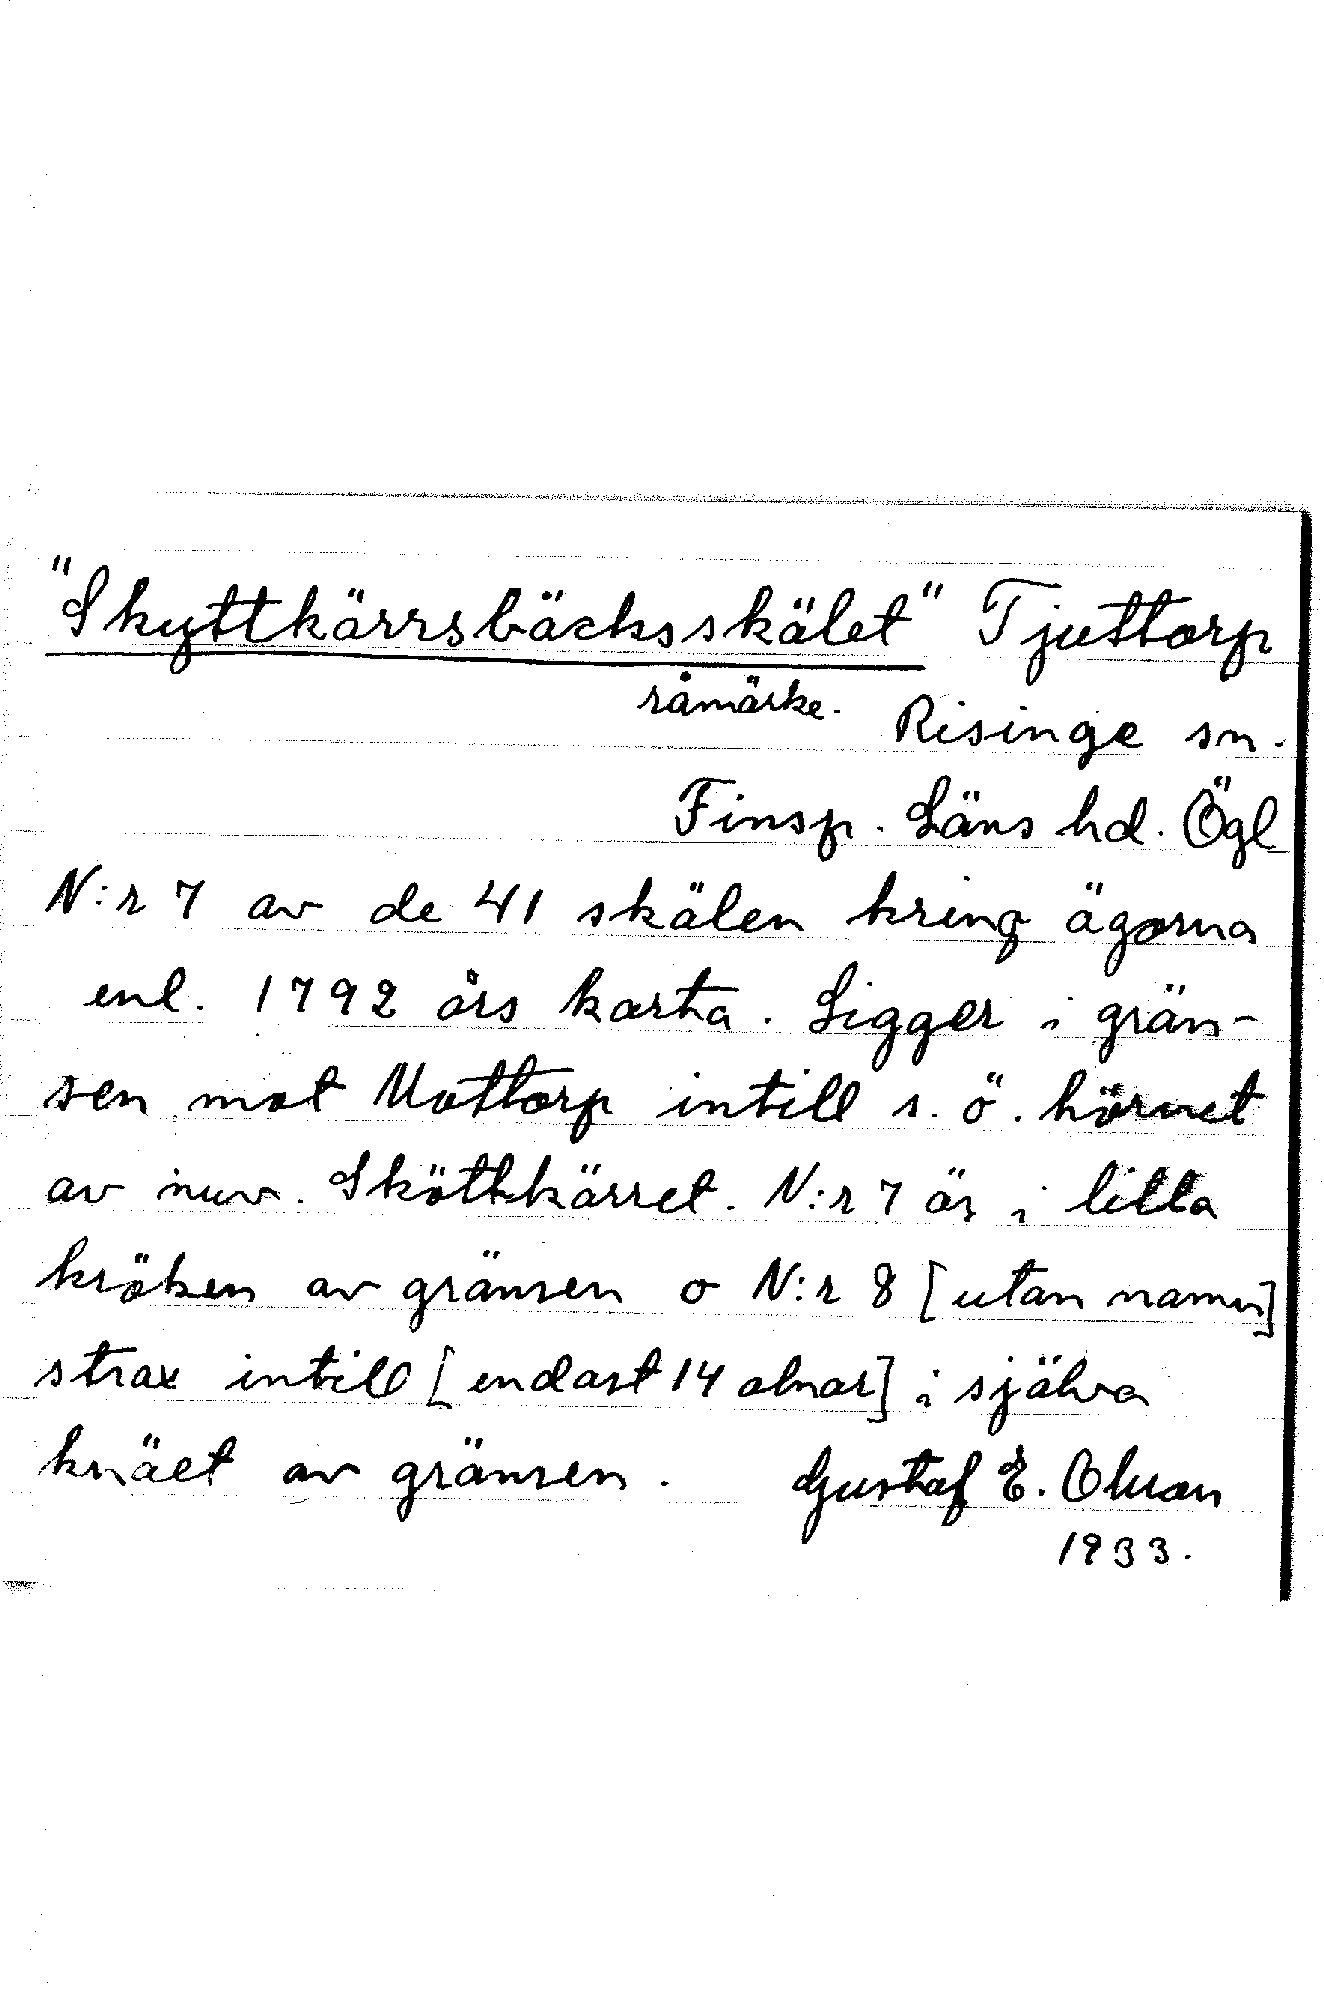 "Skyttkärrsbäcksskälet" Tjuttorp
råmärke.
Risinge sn.
Finsp. Läns hd. Ögl
N:r 7 av de 41 skälen kring ägorna
enl. 1792 års karta. Ligger i grän-
sen mot Mottorp intill s.ö. hörnet
av nuv. Sköttkärret. N:r 7 är i lilla
kröken av gränsen o N:r 8 [utan namn]
strax intill [endast 14 alnar] i själva
knäet av gränsen. Gustaf E. Olsson
1933.